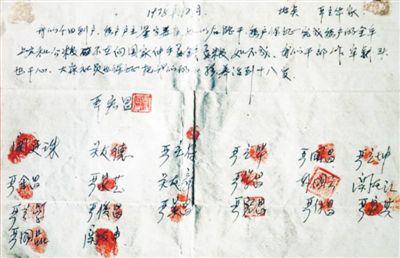 1978年12月 地点 严立华家
我们分田到户，每户户主签字盖章，如以后能干，每户保证完成每户的全年
上交和公粮，不在向国家伸手要钱要粮，如不成，我们干部作牢刹
头也干心，大家社员也保证把我们的小孩养活到十八岁
严宏昌
关廷珠 关友德 严立符 严立华 严国昌 严立坤
严金昌 严家芝 关友章 严学昌 韩国云 关友江
严立学 严俊昌 严美昌 严宏昌 严付昌 严家其
严国品 关友申